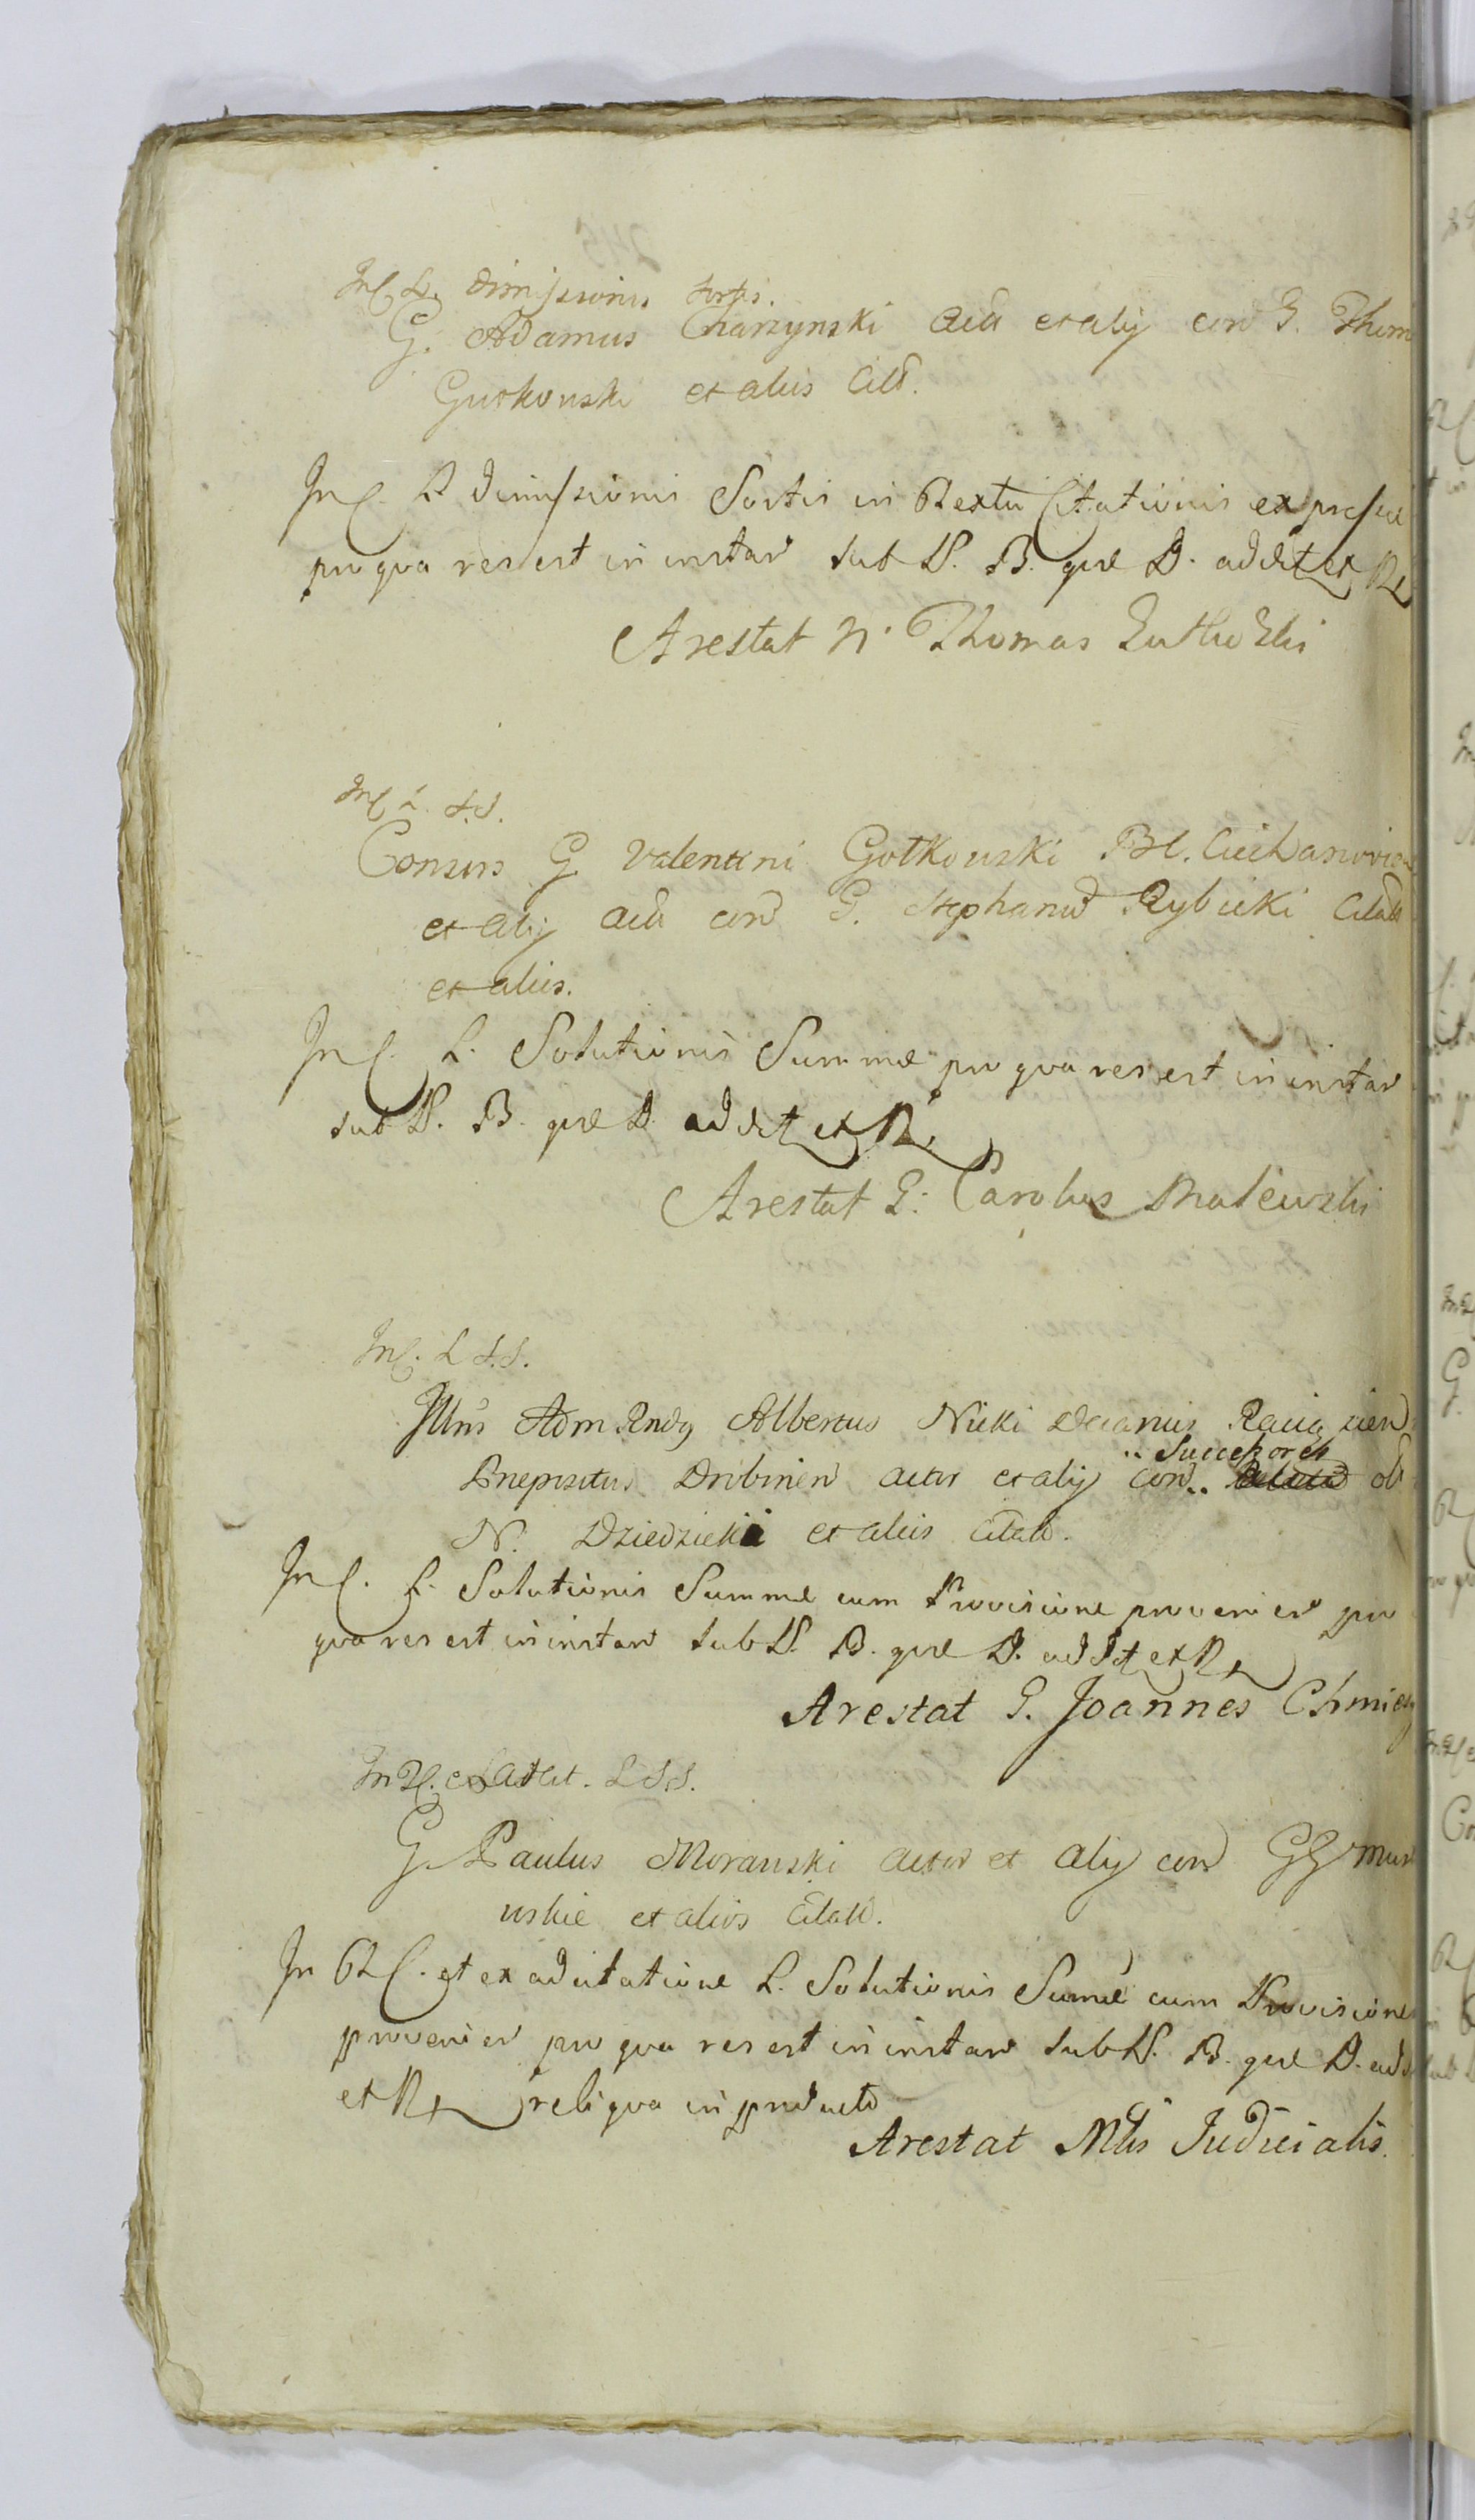 In C. L. dimissionis sortis.
G. Adamus Charzynski act et alij con G. Thom
Gutkouski et aliis Citt.
In C. L. dimissionis Sortis in Textu Citationis expressae
pro qua res est in instan sub P. B. quae D. addit et R
Arestat N. Thomas
In C. L. S. S.
Consors G Valentini Gotkouski Ciechanovien
et alij act con G. Stephanum Rybicki Citat
et aliis.
In C. L. Solutionis Summae pro qua res est in instan
sub P. B. quae D addit et R.
Arestat G. Carolus Malewski
In C. L S. S.
Illris Adm Rndg Albertus Nicki Decanus Raciązien
Prepositus Dribinen actor et alij con.. Successores
N. Dziedzicki et aliis Citat.
In C. L. Solutionis Summae cum Provisione provenien pro
qua res est in instan sub P. B. quae D. addit et R
Arestat G. Joannes Chmie
L S S.
G Paulus Morauski actor et alij con GG Mur
uskie et alios Citatt.
In R C. et ex adcitatione L. Solutionis Summae cum Provisione
provenien pro qua res est in instan sub P. B. quae D. add
et R reliqua in producto
Arestat Mlis Judicialis.